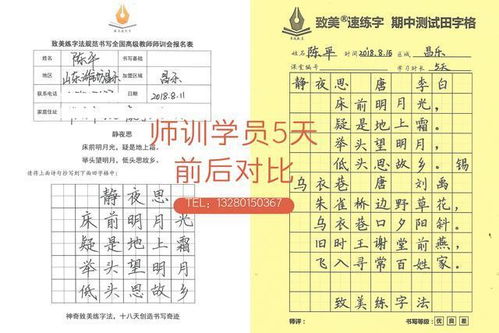 致美练字法规范书写全国高级教师师训会报名表
姓名 陈平 书写基础
地区 山东潍坊昌乐 加盟区域 昌乐
联系电话 日期 2018.8.11
家庭住址
静夜思
床前明月光,疑是地上霜。
举头望明月,低头思故乡。
请将上面诗句抄写到下面田字格中:
静夜思
床前明月光
疑是地上霜
举头望明月
低头思故乡
神奇致美练字法,十八天创造书写奇迹
致美®速练字 期中测试田字格
姓名 陈平 时间 2018.8.16 区域 昌乐
课堂编号 学习时长 5天
静夜思 唐 李白
床前明月光,
疑是地上霜。
举头望明月,
低头思故乡。锡
乌衣巷 唐 刘禹
朱雀桥边野草花,
乌衣巷口夕阳斜。
旧时王谢堂前燕,
飞入寻常百姓家。
致美练字法
师评: 书写等级: 优 良 差
师训学员5天
前后对比
TEL:13280150367